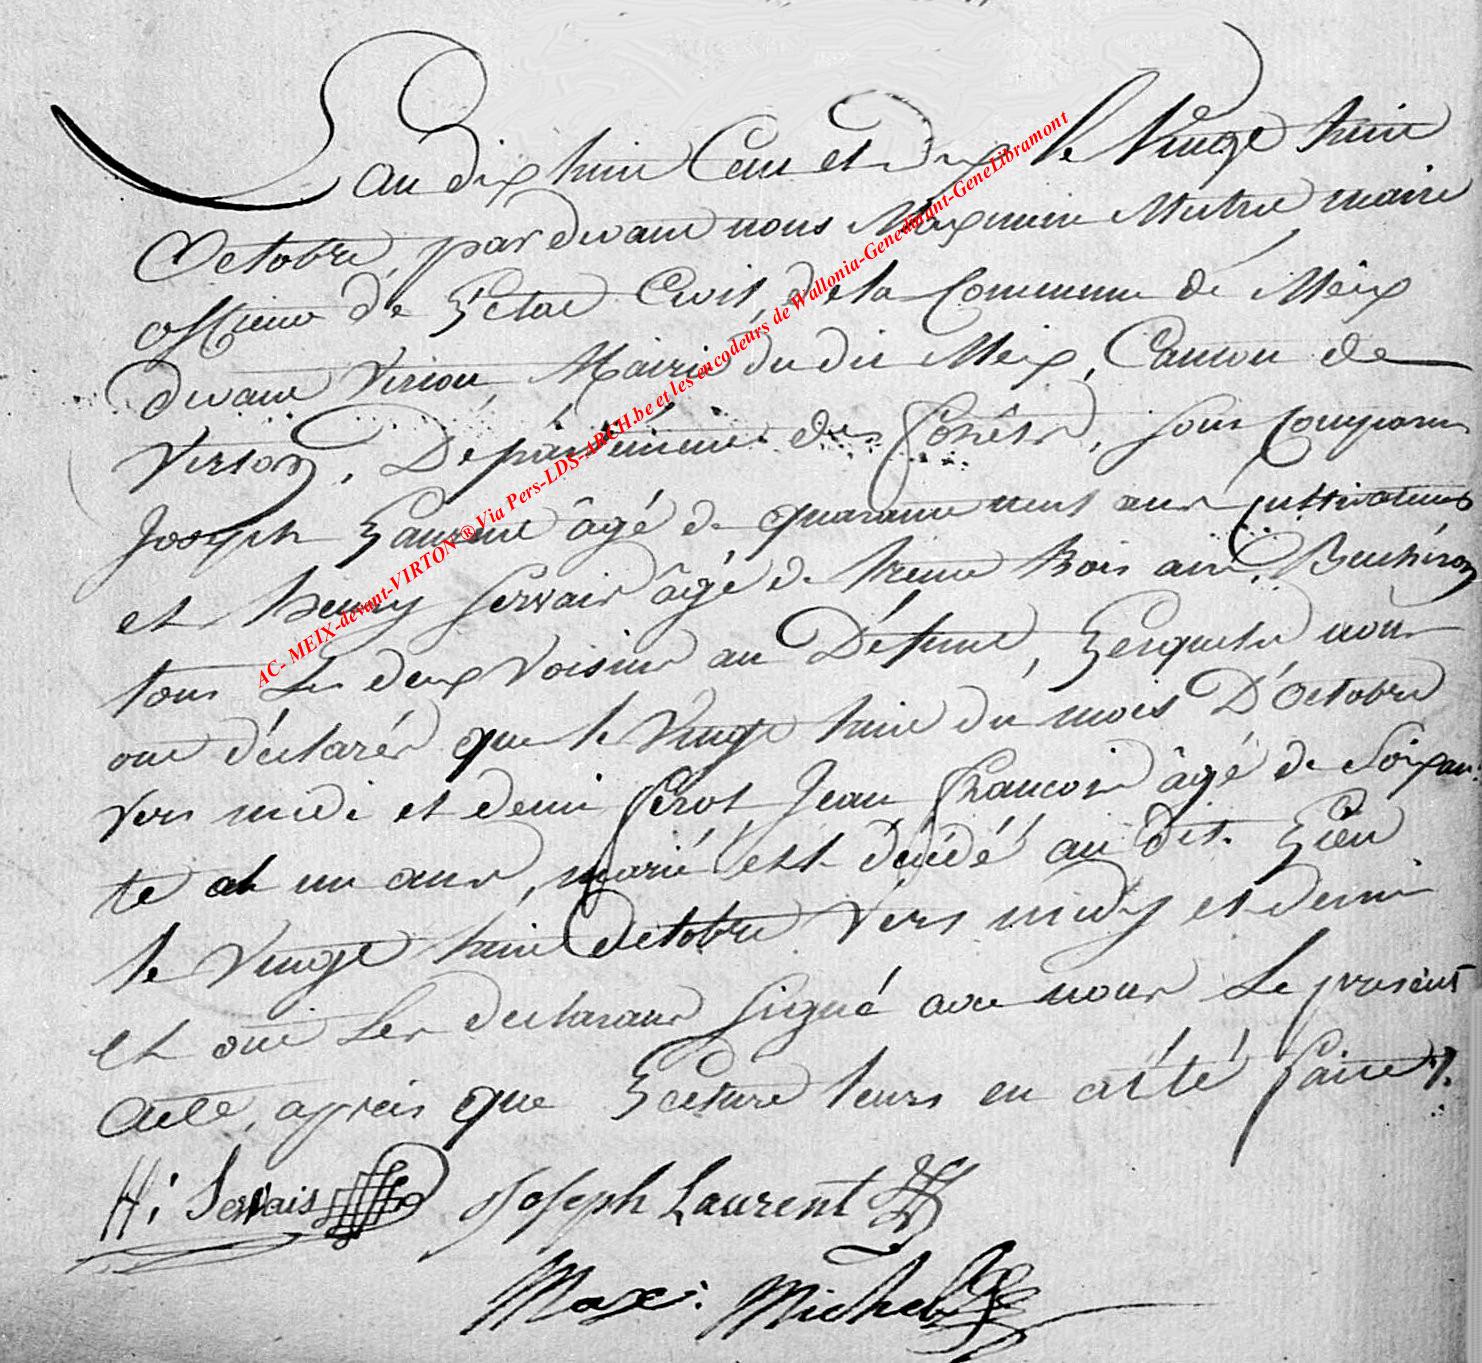 L'an dix huit Cent et dix le Vingt huit
Octobre, pardevant nous Maximin Michel maire
officier de L'état Civil, de la Commune de Meix
devant Virton, Mairie du dit Meix, Canton de
Virton, Département des forêts, sont Comparus
Joseph Laurent âgé de quarante neuf ans Cultivateur
et henry Servais âgé de trente trois ans, Bucheron
tous les deux Voisins au Défunt, Lesquels nous
ont déclarés que le Vingt huit du mois D'Octobre
Vers midi et demi Gerot Jean francois âgé de Soixan-
te et un ans, marié est décédé au dit Lieu
le Vingt huit Octobre Vers midy et demi
et ont Les declarans Signé avec nous Le present
Acte, après que Lecture leurs en a été faite ./.
H: Servais Joseph Laurent
Max: Michel
AC- MEIX-devant-VIRTON ® Via Pers-LDS-ARCH.be et les encodeurs de Wallonia-Genedinant-GeneLibramont